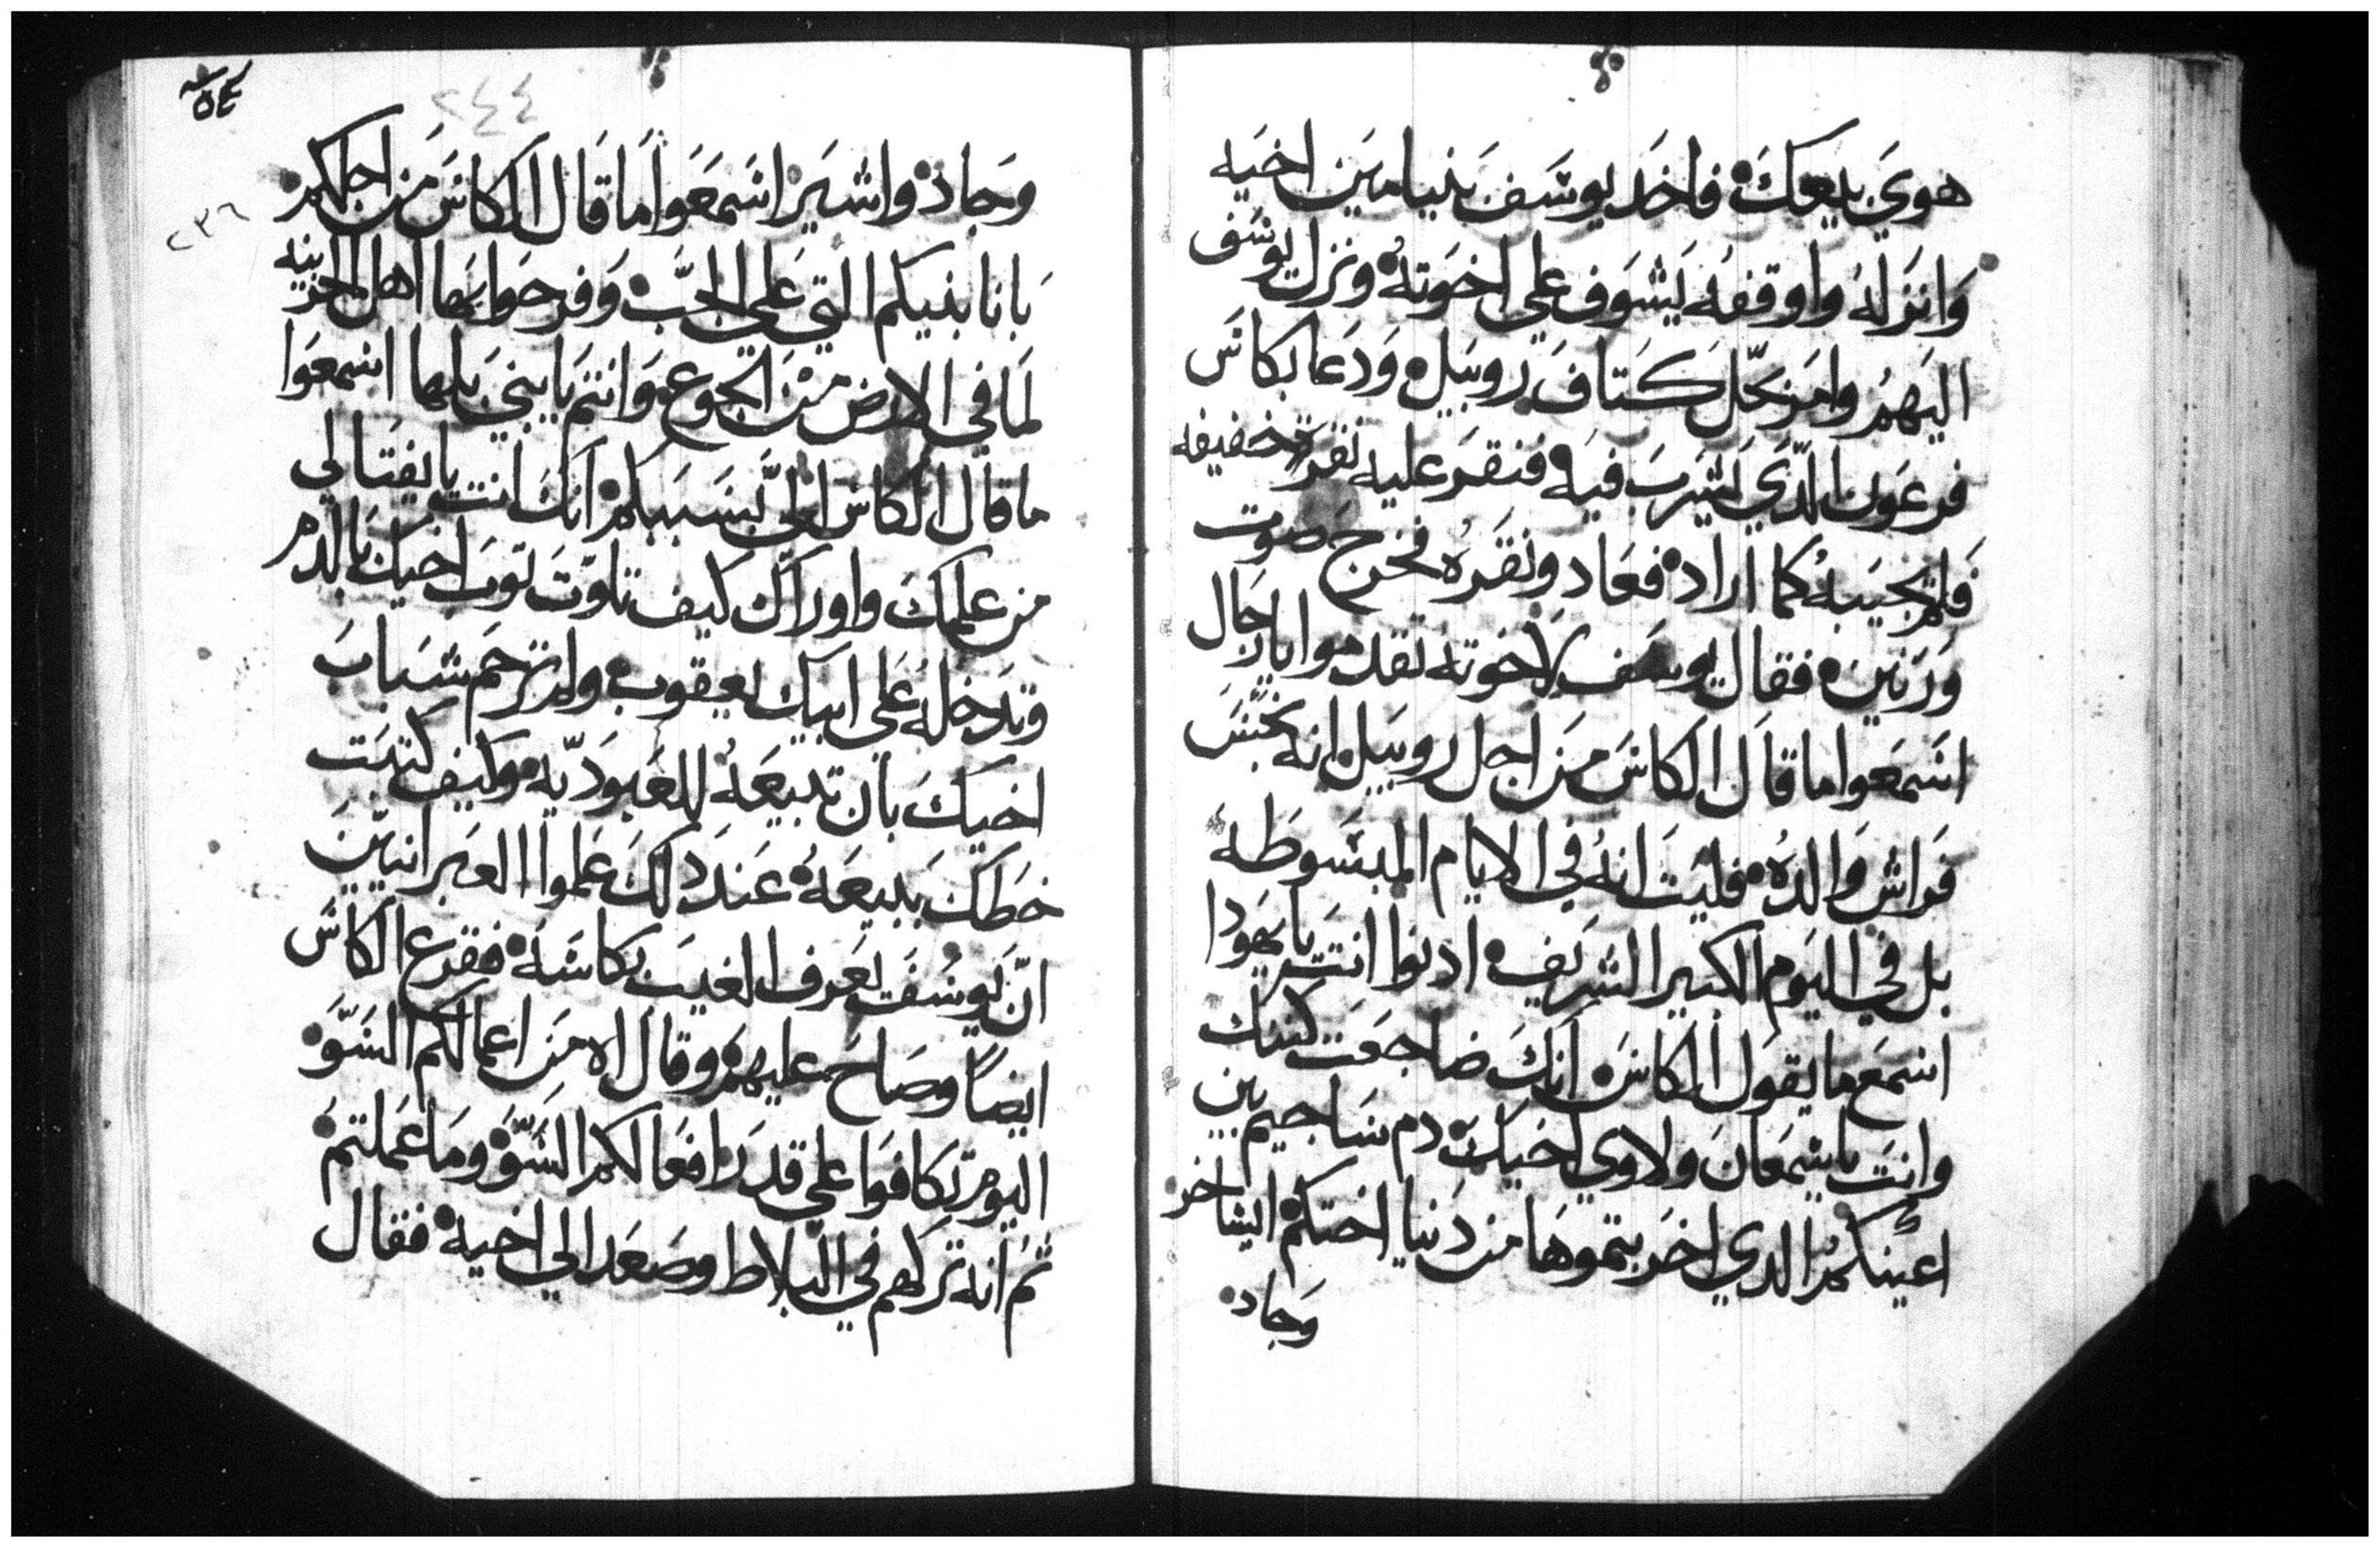 هوي يلعك فاخد يوسف بنيامين اخيه
وانزله واوقفه يشوف علي اخوته ونزل يوسف
اليهم وامر بحل كتاف روبيل ودعا بكاس
فرعون الدي يشرب فيه فنقر عليه نقرة خفيفه
فلم تجيبه كما اراد فعاد ونقره فخرج صوت
ورنين فقال يوسف لاخوته تقدموا يا رجال
اسمعوا ما قال الكاس من اجل روبيل انه نجس
فراش والده فليت انه في الايام المبسوطه
بل في اليوم الكبير الشريف ادنوا انت يا يهودا
اسمع ما يقول الكاس انك ضاجعت كنتك
وانت يا شمعان ولاوي اخيك دم ساجيم بين
اعينكم الدي اخربتموها من دنيا اختكم ايساخر
وجاد
٢٤٤
٢٣٦
وجاد واشير اسمعوا ما قال الكاس من اجلكم
بانا بنيكم التي علي الجب وفرحوا بها اهل المدينه
لما في الارض من الجوع وانتم يا بني بلها اسمعوا
ما قال الكاس الي بسببكم انك انت يا نفتالي
من علمك واوراك كيف تلوت توب اخيك بالدم
وتدخله علي ابيك يعقوب ولم ترحم شباب
اخيك بان تبيعه للعبوديه وكيف كتبت
خطك ببيعه عند دلك علموا العبرانيين
ان يوسف يعرف الغيب بكاسه فقرع الكاس
ايضا وصاح عليهم وقال اه من اعمالكم السو
اليوم تكافوا علي قدر افعالكم السو وما عملتم
ثم انه تركهم في البلاط وصعد الي اخيه فقال